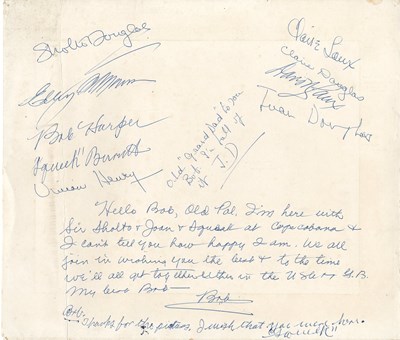 Sholto Douglas
Bob Harper
"Squeek" Burnett
Vivian Henry
Claire Laux
Claire Douglas
Joan Douglas
Old "guard dad" to son
Bob in fall of
J.D
"Hello Bob, Old Pal, I'm here with
Sir Sholto & Joan & Squeek at Copacabana &
I can't tell you how happy I am. We all
join in wishing you the best & to the time
we'll all get together either in the USA or G.B.
My best Bob—
Bob
Bob:
Thanks for the pictures. I wish that you were here.
"Squeek"